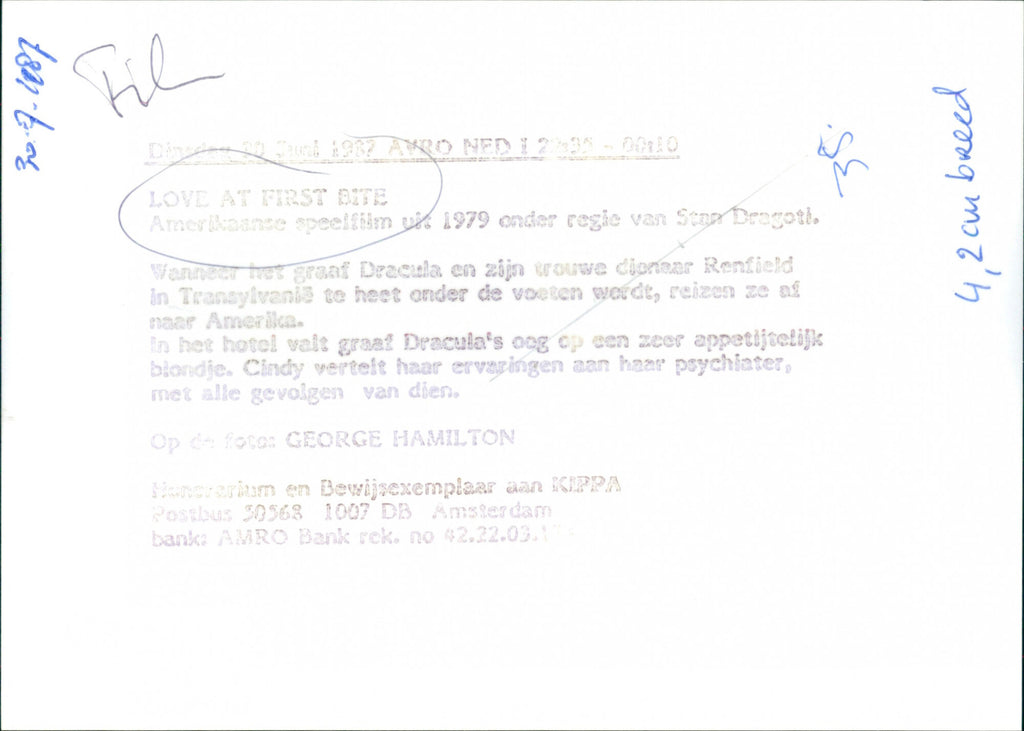 30-7-1987
Film
Dinsdag 30 Juni 1987 AVRO NED I 22:35 - 00:10
LOVE AT FIRST BITE
Amerikaanse speelfilm uit 1979 onder regie van Stan Dragoti.
Wanneer het graaf Dracula en zijn trouwe dienaar Renfield
in Transylvanië te heet onder de voeten wordt, reizen ze af
naar Amerika.
In het hotel valt graaf Dracula's oog op een zeer appetijtelijk
blondje. Cindy vertelt haar ervaringen aan haar psychiater,
met alle gevolgen van dien.
Op de foto: GEORGE HAMILTON
Honorarium en Bewijsexemplaar aan KIPPA
Postbus 50568 1007 DB Amsterdam
bank: AMRO Bank rek. no 42.22.03.
38.
4,2 cm breed